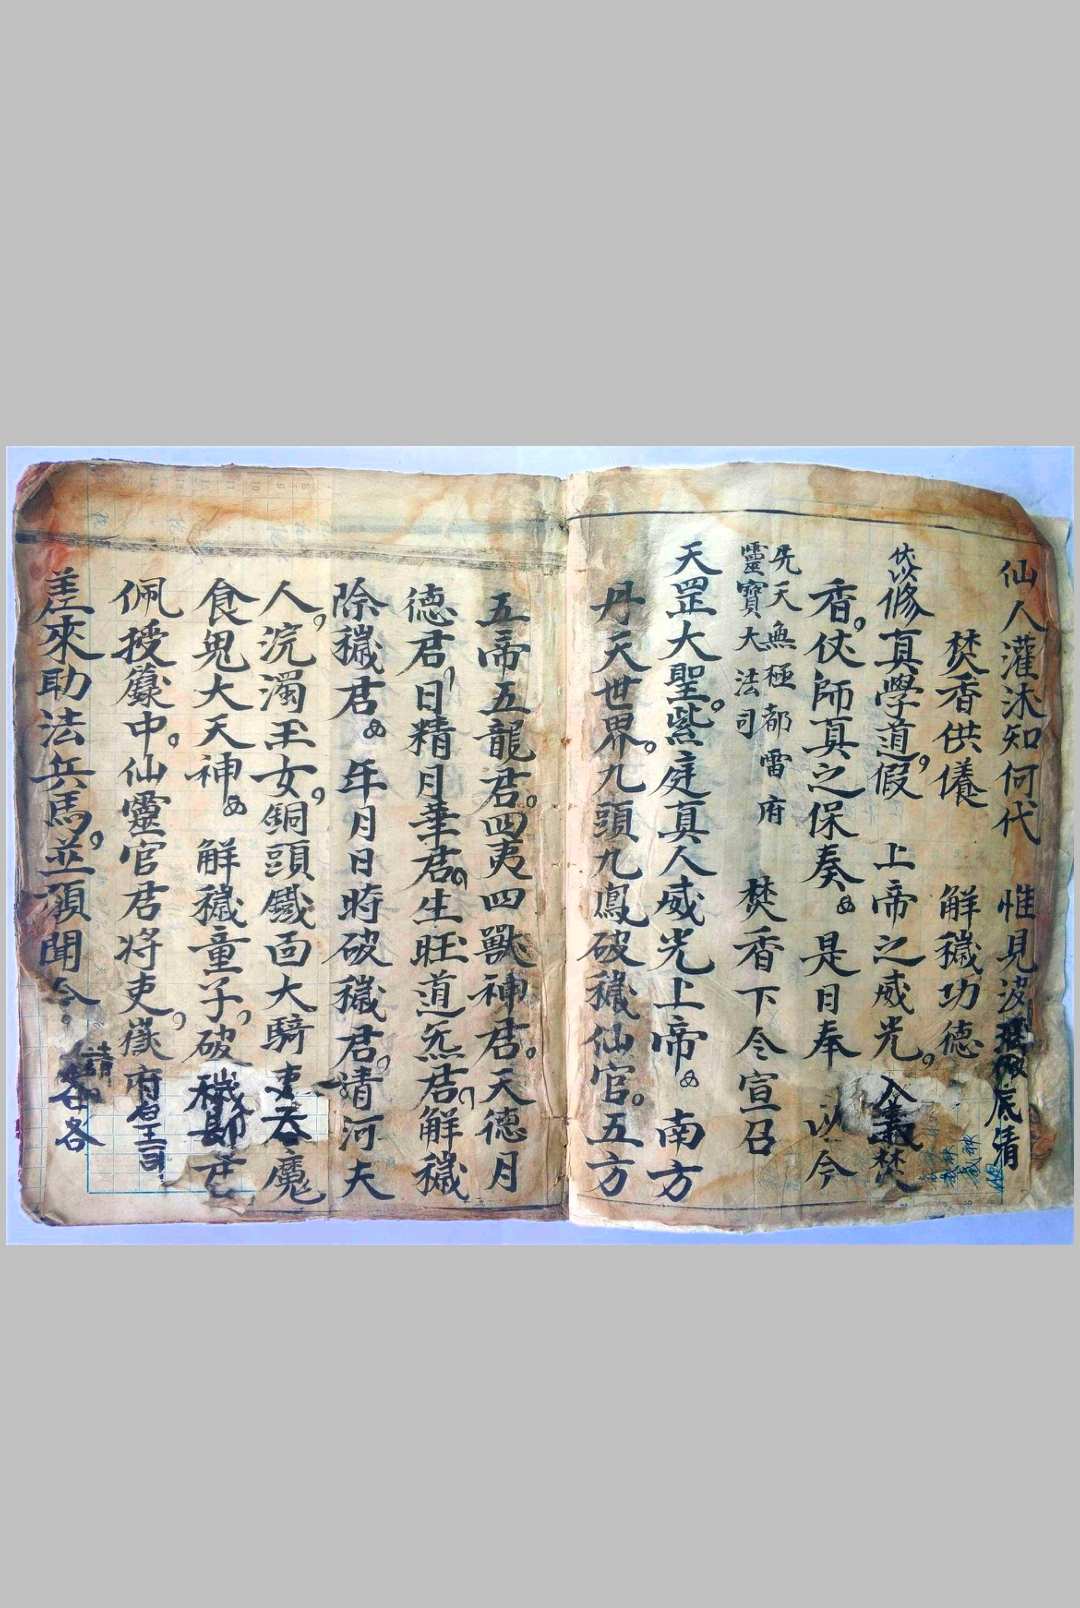 仙人灌沐知何代　惟見波瑶徹底清
焚香供養　解穢功德
依以修真學道，假　上帝之威光。入義焚
香。仗師真之保奏。是日奉　以今
先天無極都雷府
靈寶大法司　焚香下令宣召
天罡大聖。紫庭真人威光上帝。南方
丹天世界。九頭九鳳破穢仙官。五方
五帝五龍君。四夷四獸神君。天德月
德君，日精月華君，生旺道炁君，解穢
除穢君。年月日時破穢君。清河夫
人，浣濁玉女，銅頭鐵面大騎吏吞魔
食鬼大天神。解穢童子，破穢
佩授籙中。仙靈官君將吏，嶽府
差來助法兵馬。並須聞令。請各